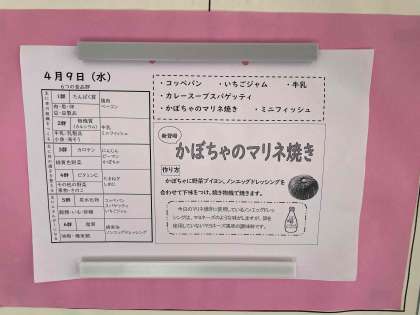 4月9日（水）
6つの食品群
1群 たんぱく質
魚・肉・卵
豆・豆製品
豚肉
ベーコン
2群 無機質
（カルシウム）
牛乳・乳製品
小魚・海そう
牛乳
ミニフィッシュ
3群 カロテン
緑黄色野菜
にんじん
ピーマン
かぼちゃ
4群 ビタミンC
その他の野菜
果物・きのこ
たまねぎ
しめじ
5群 炭水化物
穀類・いも・砂糖
コッペパン
スパゲティ
いちごジャム
6群 脂質
油脂・種実類
ノンエッグドレッシング
・コッペパン ・いちごジャム ・牛乳
・カレースープスパゲッティ
・かぼちゃのマリネ焼き ・ミニフィッシュ
新登場
かぼちゃのマリネ焼き
作り方
かぼちゃに野菜ブイヨン、ノンエッグドレッシングを
合わせて下味をつけ、焼き物機で焼きます。
今日のマリネ焼きに使用しているノンエッグドレッ
シングは、マヨネーズのような味がしますが、卵を
使用していないマヨネーズ風味の調味料です。